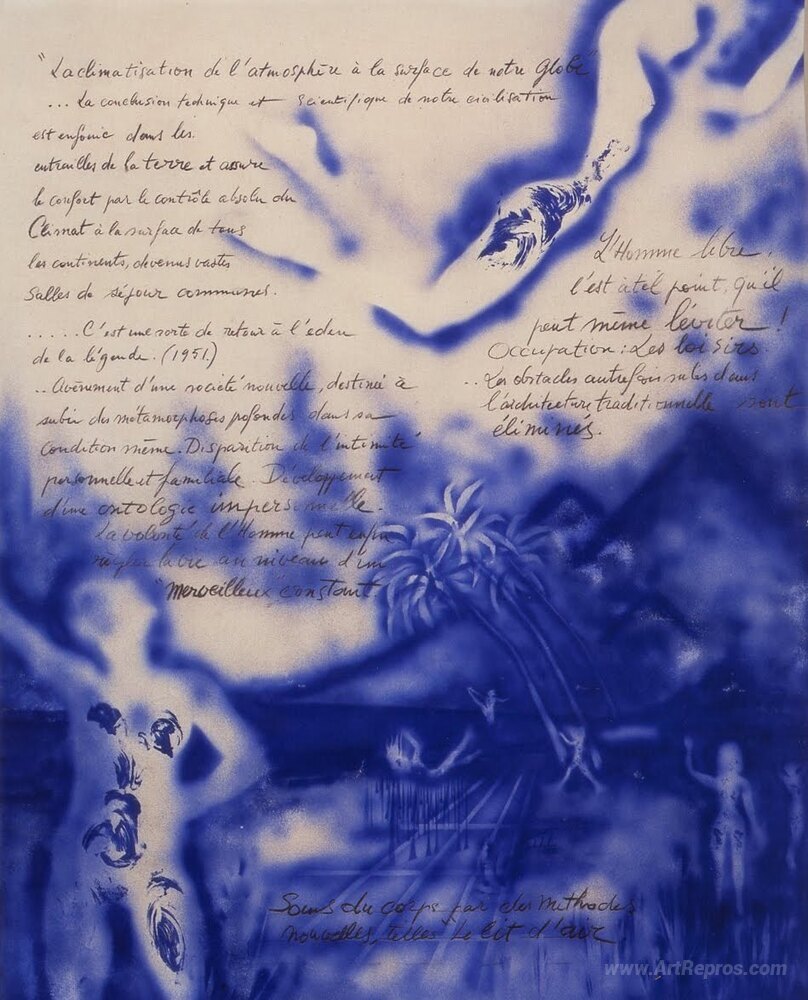 "La climatisation de l'atmosphère à la surface de notre Globe"
... La conclusion technique et scientifique de notre civilisation
est enfouie dans les
entrailles de la terre et assure
le confort par le contrôle absolu du
Climat à la surface de tous
les continents, devenus vastes
salles de séjour communes.
..... C'est une sorte de retour à l'eden
de la légende. (1951.)
.. Avènement d'une société nouvelle, destinée à
subir des métamorphoses profondes dans sa
condition même. Disparition de l'intimité
personnelle et familiale. Développement
d'une ontologie impersonnelle.
La volonté de l'Homme peut enfin
régler la vie au niveau d'un
"merveilleux" constant
L'Homme libre,
l'est à tel point, qu'il
peut même léviter !
Occupation : Les loisirs.
.. Les obstacles autrefois subis dans
l'architecture traditionnelle sont
éliminés.
Soins du corps par des méthodes
nouvelles, telles le lit d'air
www.ArtRepros.com